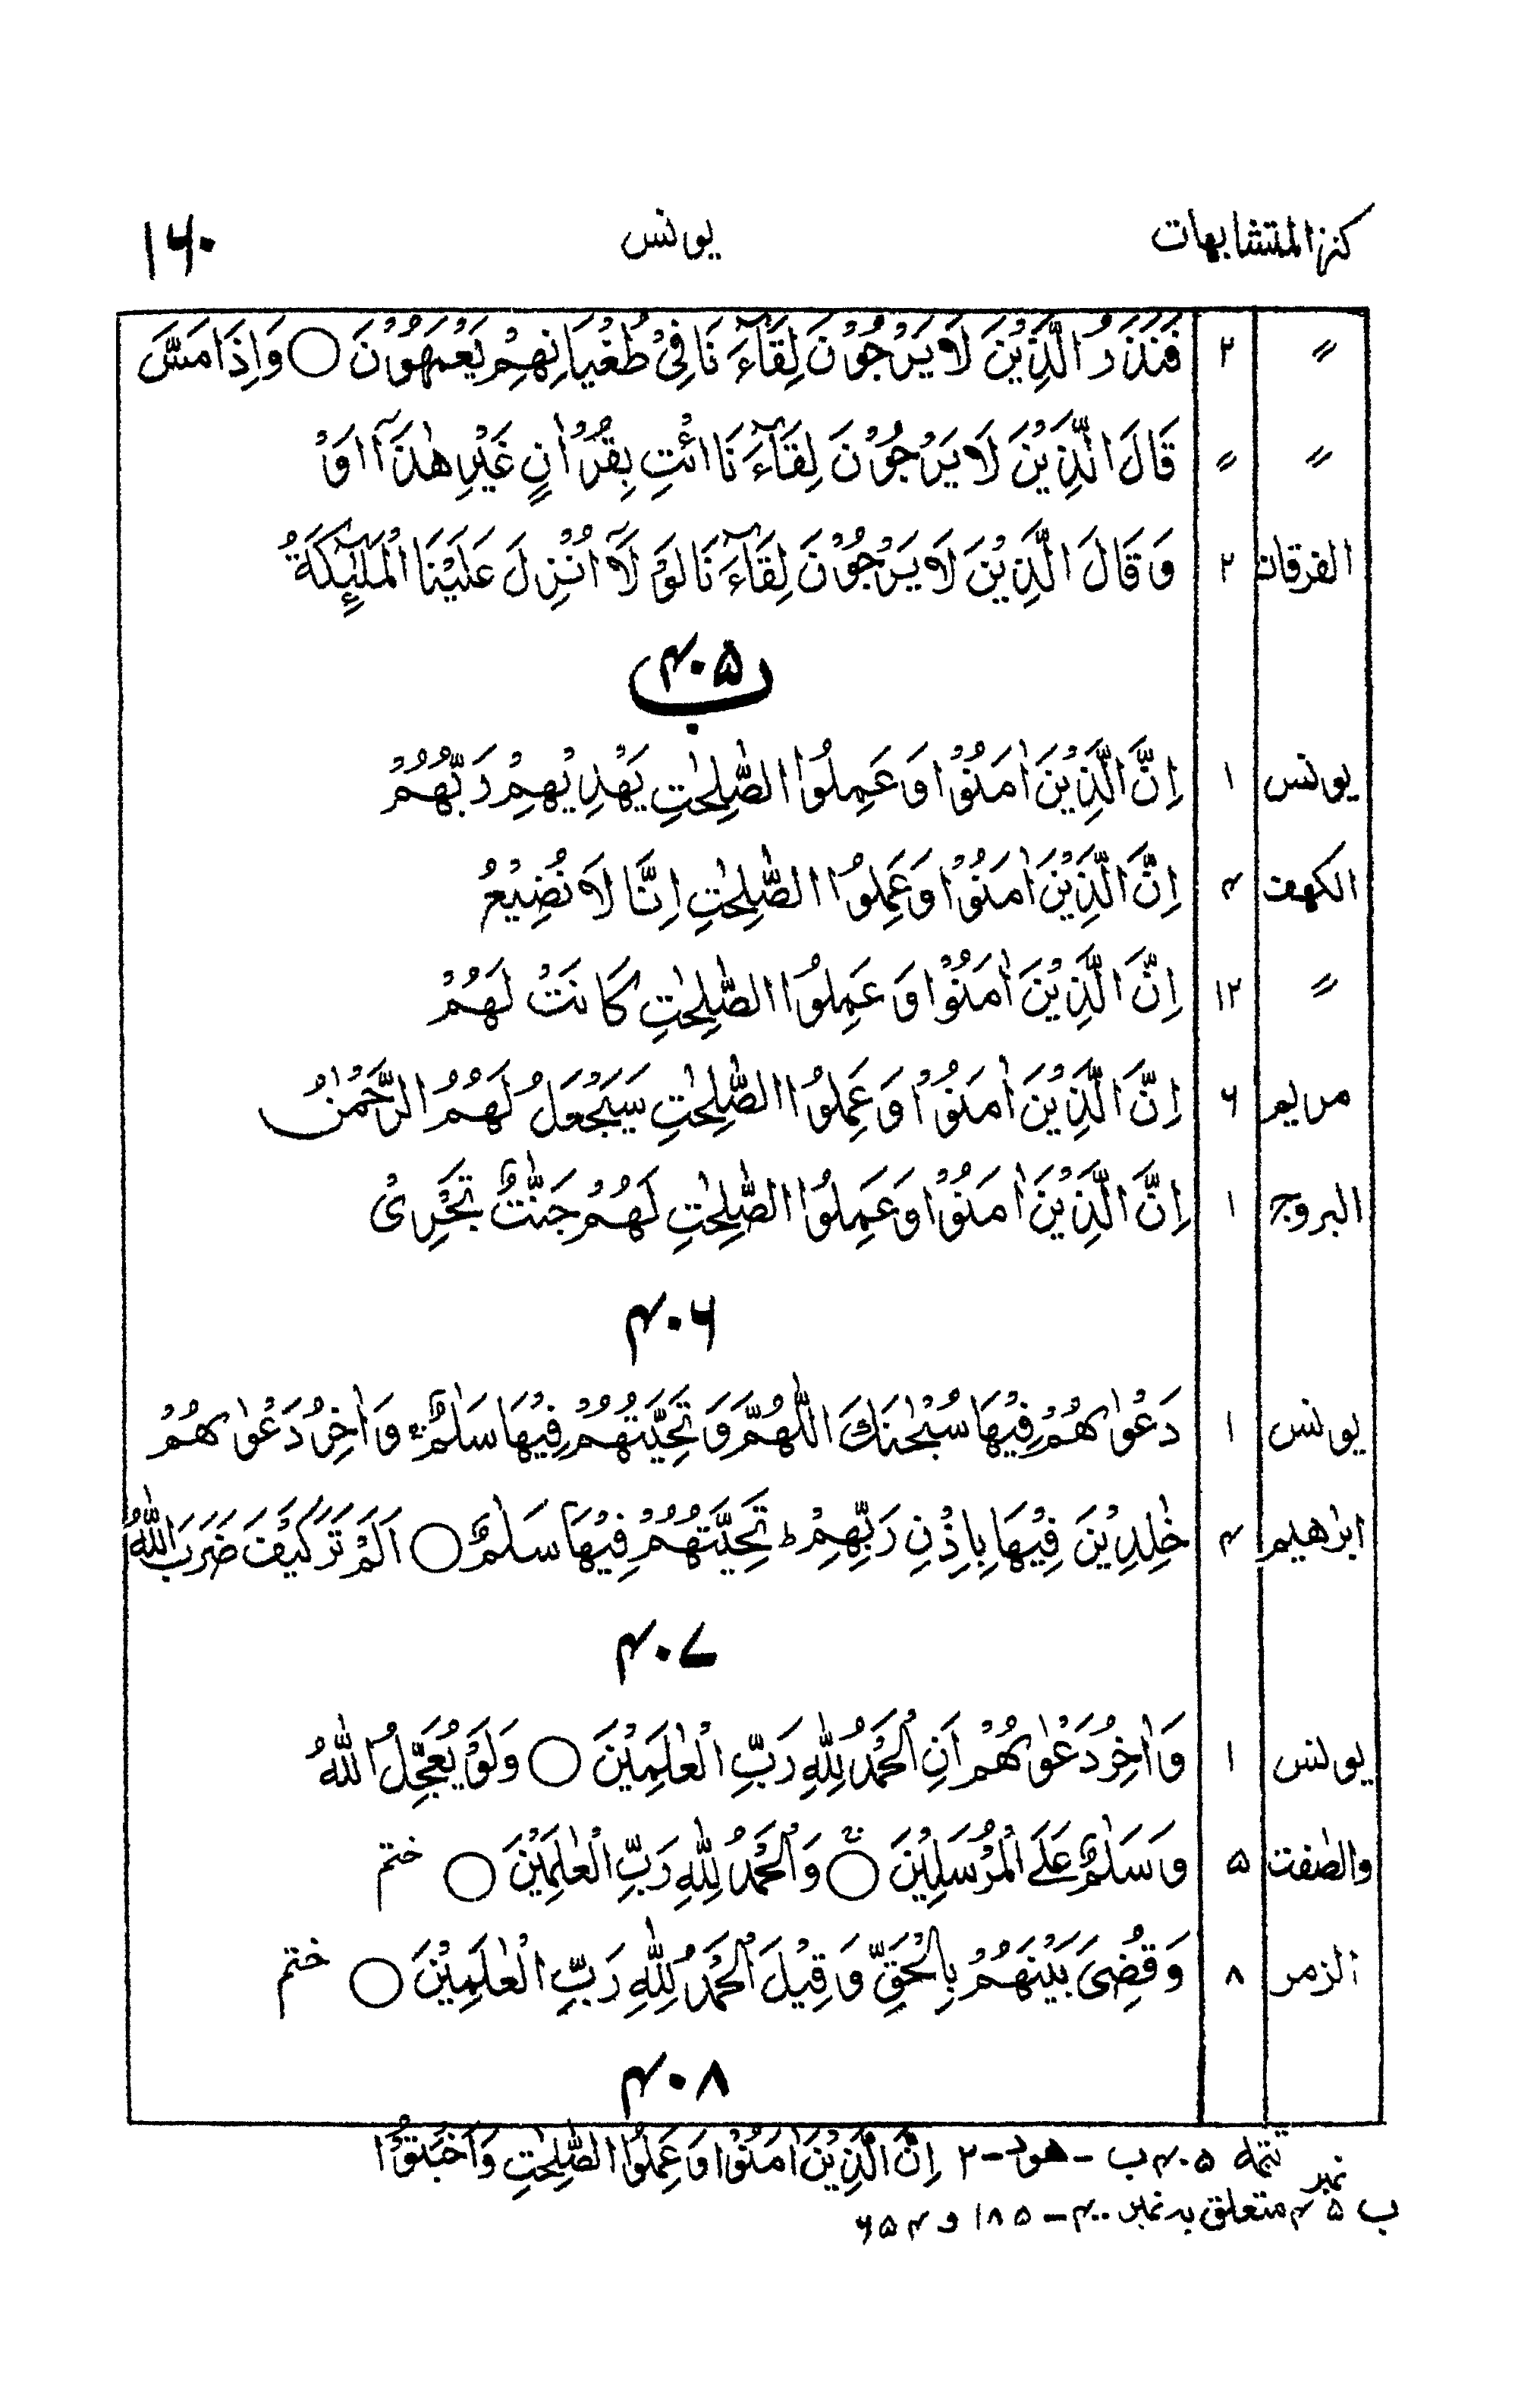 كنز المتشابهات یونس ۱۶۰
〃 ۲ فَنَذَرُ الَّذِيْنَ لَا يَرْجُوْنَ لِقَآءَنَا فِيْ طُغْيَانِهِمْ يَعْمَهُوْنَ ○ وَاِذَا مَسَّ
〃 〃 قَالَ الَّذِيْنَ لَا يَرْجُوْنَ لِقَآءَنَا ائْتِ بِقُرْاٰنٍ غَيْرِ هٰذَآ اَوْ
الفرقان ۲ وَقَالَ الَّذِيْنَ لَا يَرْجُوْنَ لِقَآءَنَا لَوْ لَآ اُنْزِلَ عَلَيْنَا الْمَلٰٓئِكَةُ
۴۰۵ ب
یونس ۱ اِنَّ الَّذِيْنَ اٰمَنُوْا وَعَمِلُوا الصّٰلِحٰتِ يَهْدِيْهِمْ رَبُّهُمْ
الكهف ۴ اِنَّ الَّذِيْنَ اٰمَنُوْا وَعَمِلُوا الصّٰلِحٰتِ اِنَّا لَا نُضِيْعُ
〃 ۱۲ اِنَّ الَّذِيْنَ اٰمَنُوْا وَعَمِلُوا الصّٰلِحٰتِ كَانَتْ لَهُمْ
مريم ۶ اِنَّ الَّذِيْنَ اٰمَنُوْا وَعَمِلُوا الصّٰلِحٰتِ سَيَجْعَلُ لَهُمُ الرَّحْمٰنُ
البروج ۱ اِنَّ الَّذِيْنَ اٰمَنُوْا وَعَمِلُوا الصّٰلِحٰتِ لَهُمْ جَنّٰتٌ تَجْرِيْ
۴۰۶
یونس ۱ دَعْوٰىهُمْ فِيْهَا سُبْحٰنَكَ اللّٰهُمَّ وَتَحِيَّتُهُمْ فِيْهَا سَلٰمٌ ۚ وَاٰخِرُ دَعْوٰىهُمْ
ابرٰهيم ۴ خٰلِدِيْنَ فِيْهَا بِاِذْنِ رَبِّهِمْ ؕ تَحِيَّتُهُمْ فِيْهَا سَلٰمٌ ○ اَلَمْ تَرَ كَيْفَ ضَرَبَ اللّٰهُ
۴۰۷
یونس ۱ وَاٰخِرُ دَعْوٰىهُمْ اَنِ الْحَمْدُ لِلّٰهِ رَبِّ الْعٰلَمِيْنَ ○ وَلَوْ يُعَجِّلُ اللّٰهُ
والصّٰفّٰت ۵ وَسَلٰمٌ عَلَى الْمُرْسَلِيْنَ ○ وَالْحَمْدُ لِلّٰهِ رَبِّ الْعٰلَمِيْنَ ○ ختم
الزمر ۸ وَقُضِيَ بَيْنَهُمْ بِالْحَقِّ وَقِيْلَ الْحَمْدُ لِلّٰهِ رَبِّ الْعٰلَمِيْنَ ○ ختم
۴۰۸
تتمه ۴۰۵ ب - هود - ۲ اِنَّ الَّذِيْنَ اٰمَنُوْا وَعَمِلُوا الصّٰلِحٰتِ وَاَخْبَتُوْٓا
ب نمبر ۴۵ متعلق به نمبر ۴۰۰ - ۱۸۵ و ۶۵۴